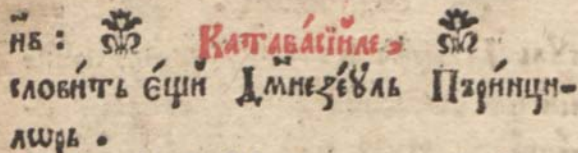 нъ : Катава́сїйле,
слови́ть є́щй Дм҃незе́ꙋль Пъри́нци-
лѡрь .